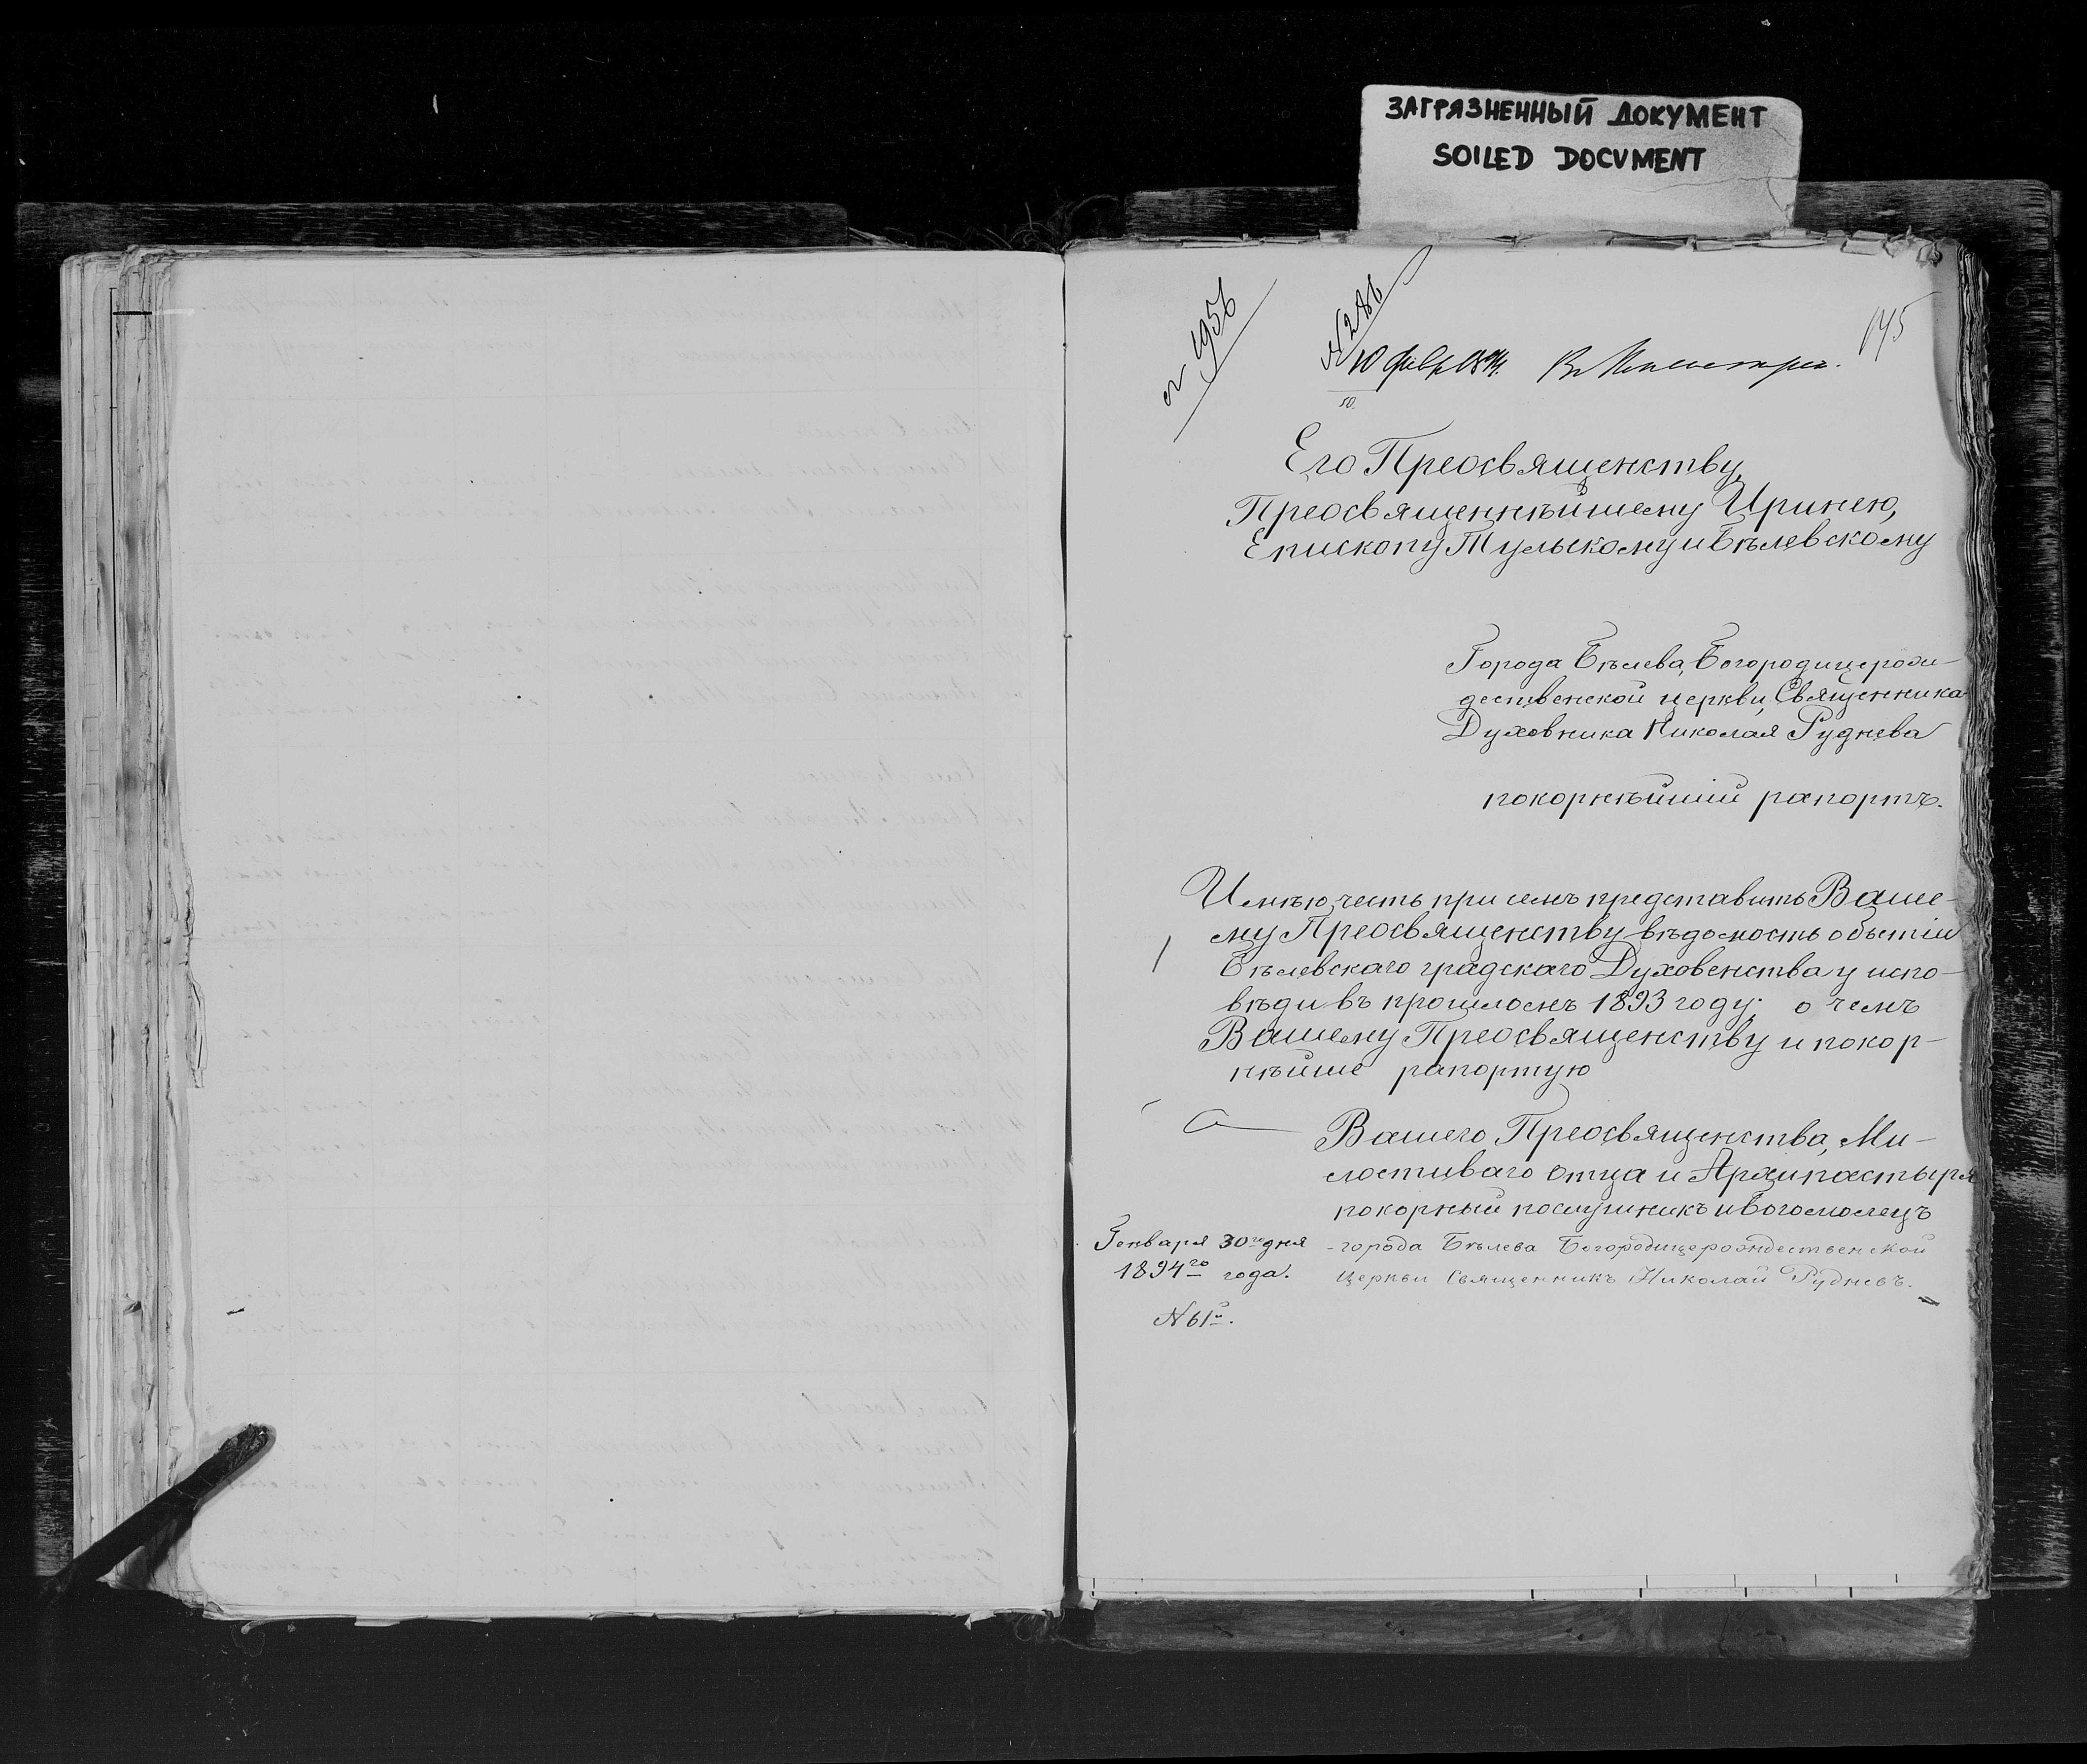 ЗАГРЯЗНЕННЫЙ ДОКУМЕНТ
SOILED DOCUMENT
1956
145
10 февр 1894. Въ Консисторію.
Его Преосвященству,
Преосвященнѣйшему Иринею,
Епископу Тульскому и Бѣлевскому
Города Бѣлева, Богородицерож-
дественской церкви, Священника
Духовника Николая Руднева
покорнѣйшій рапортъ.
Имѣю честь при семъ представить Ваше-
му Преосвященству вѣдомость о бытіи
Бѣлевскаго градскаго Духовенства у испо-
вѣди въ прошломъ 1893 году; о чемъ
Вашему Преосвященству и покор-
нѣйше рапортую
Вашего Преосвященства, Ми-
лостиваго Отца и Архипастыря
покорный послушникъ и Богомолецъ
города Бѣлева Богородицерождественской
церкви Священникъ Николай Рудневъ.
Генваря 30го дня
1894го года.
№ 61й.